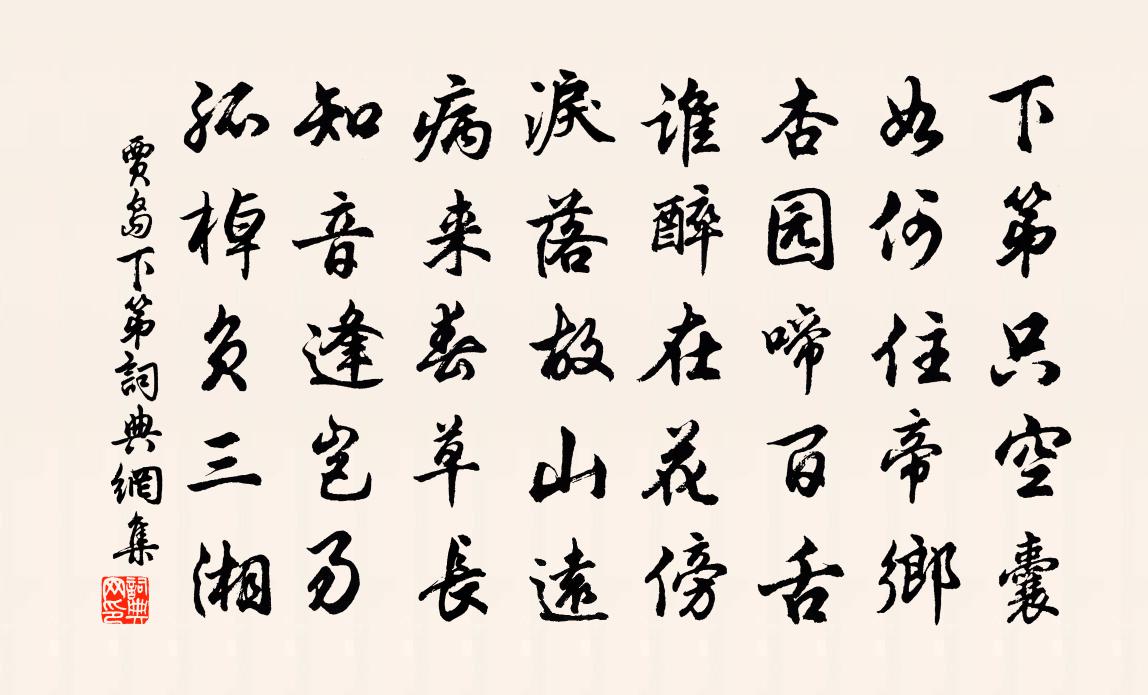 下第只空囊
如何住帝鄉
杏园啼百舌
谁醉在花傍
淚落故山遠
病来春草長
知音逢岂易
孤棹负三湘
賈島下第詞典網集
詞典
网印